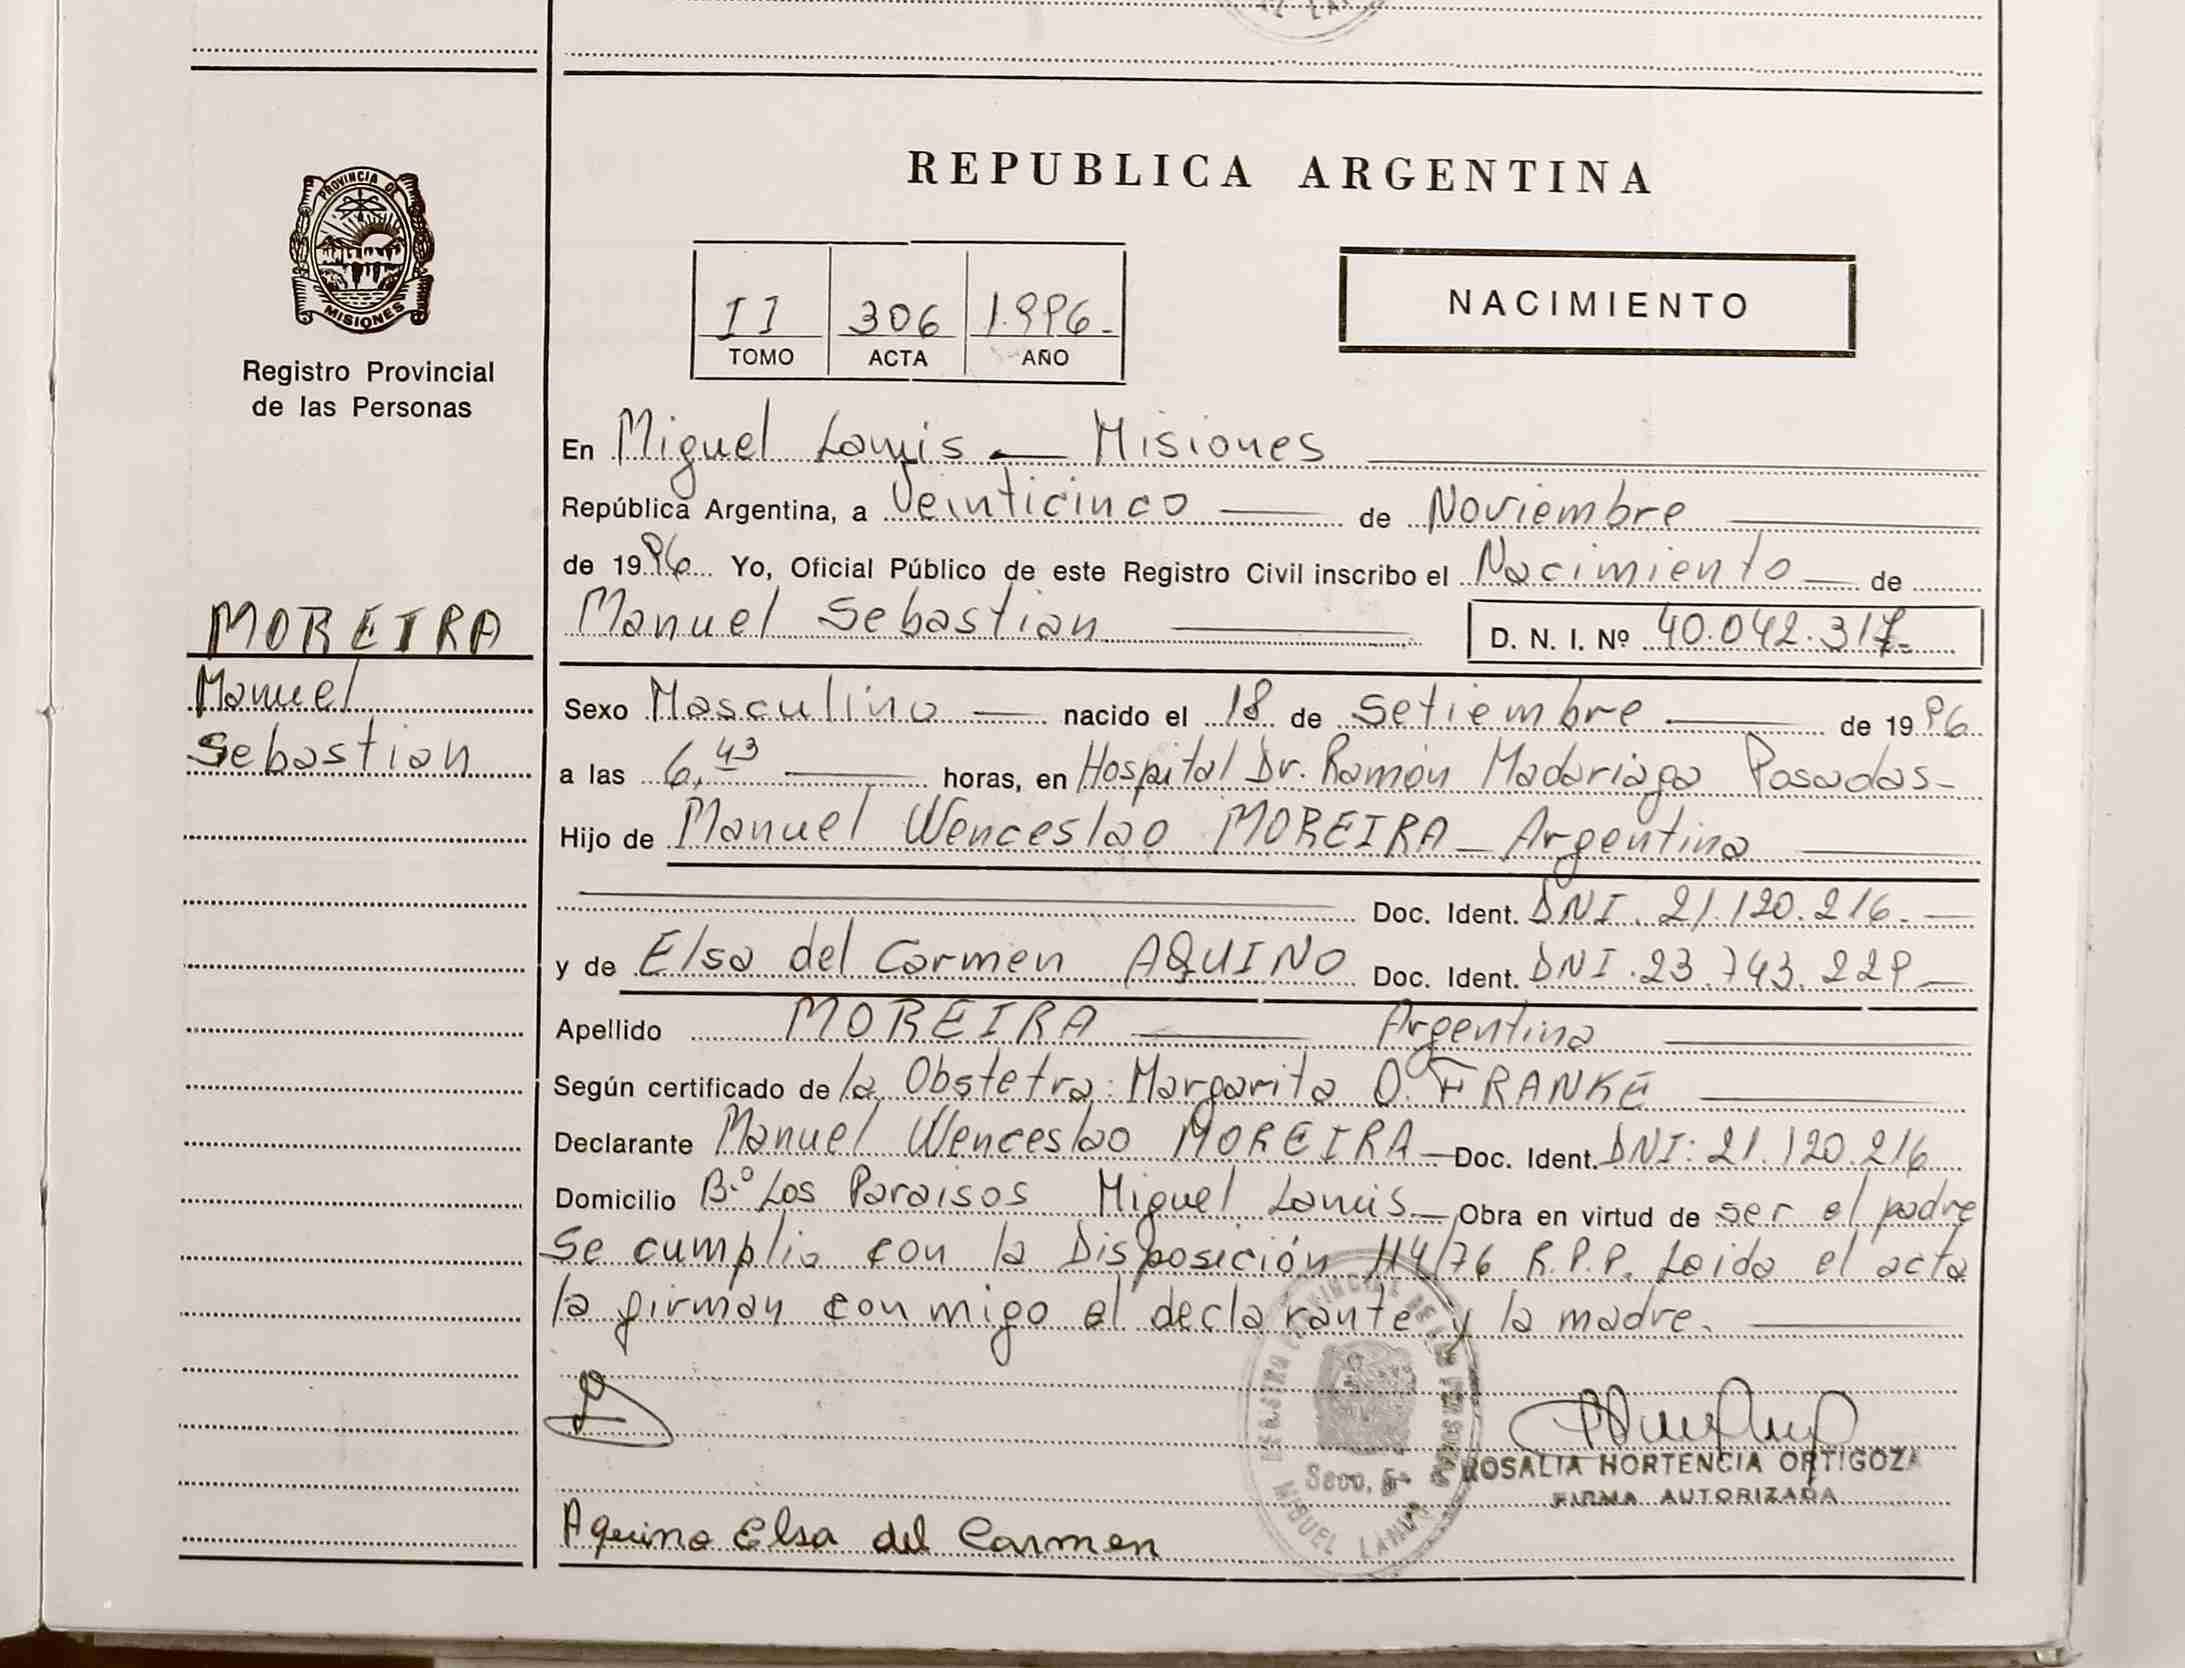 PROVINCIA DE
MISIONES
Registro Provincial
de las Personas
MOREIRA
Manuel
Sebastian
REPUBLICA ARGENTINA
II 306 1.996.-
TOMO ACTA AÑO
NACIMIENTO
En Miguel Lanus — Misiones
República Argentina, a Veinticinco de Noviembre
de 1996 Yo, Oficial Público de este Registro Civil inscribo el Nacimiento de
Manuel Sebastian D. N. I. Nº 40.042.317-
Sexo Masculino nacido el 18 de Setiembre de 1996
a las 6,43 horas, en Hospital Dr. Ramón Madariaga Posadas-
Hijo de Manuel Wenceslao MOREIRA - Argentina
Doc. Ident. DNI. 21.120.216.-
y de Elsa del Carmen AQUINO Doc. Ident. DNI. 23.743.229-
Apellido MOREIRA Argentina
Según certificado de la Obstetra: Margarita O. FRANKE
Declarante Manuel Wenceslao MOREIRA - Doc. Ident. DNI: 21.120.216
Domicilio B.º Los Paraisos Miguel Lanus - Obra en virtud de ser el padre
Se cumplio con la Disposición 114/76 R.P.P. Leida el acta
la firman conmigo el declarante y la madre.
Secc. 5ª
MIGUEL LANUS
ROSALIA HORTENCIA ORTIGOZA
FIRMA AUTORIZADA
Aquino Elsa del Carmen